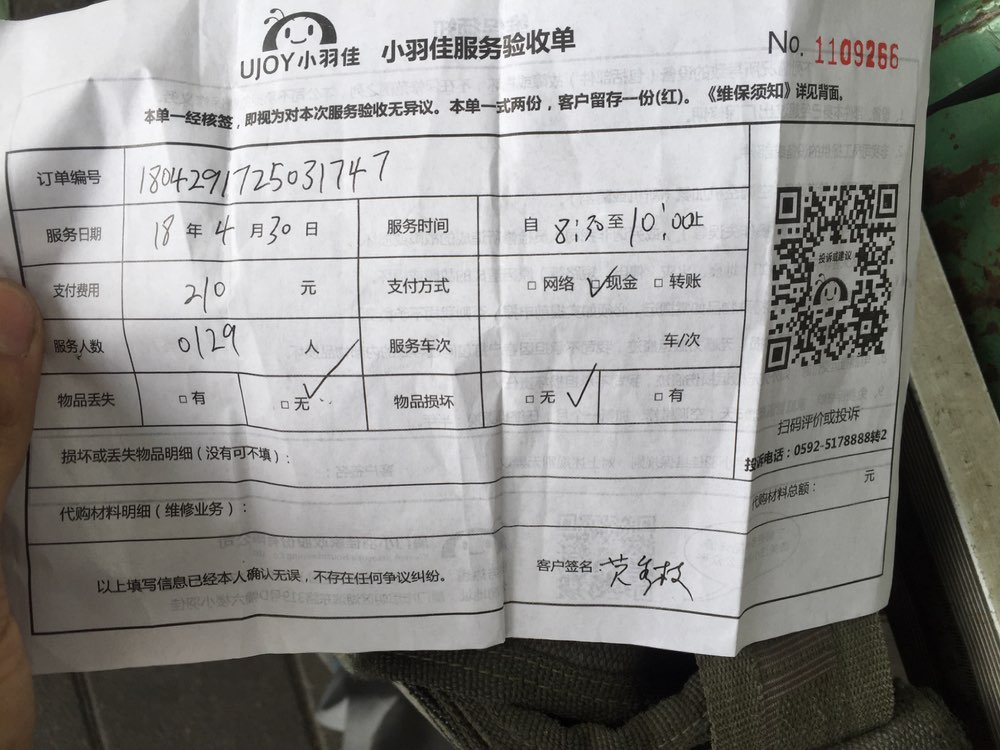 UJOY小羽佳 小羽佳服务验收单 No. 1109266
本单一经核签，即视为对本次服务验收无异议。本单一式两份，客户留存一份(红)。《维保须知》详见背面。
订单编号 1804291725031747
服务日期 18 年 4 月 30 日 服务时间 自 8:30 至 10:00 止
支付费用 210 元 支付方式 □ 网络 □ 现金 □ 转账
服务人数 0129 人 服务车次 车/次
物品丢失 □ 有 □ 无 物品损坏 □ 无 □ 有
损坏或丢失物品明细（没有可不填）：
代购材料明细（维修业务）：
代购材料总额： 元
以上填写信息已经本人确认无误，不存在任何争议纠纷。
客户签名：
投诉或建议
扫码评价或投诉
投诉电话：0592-5178888转2